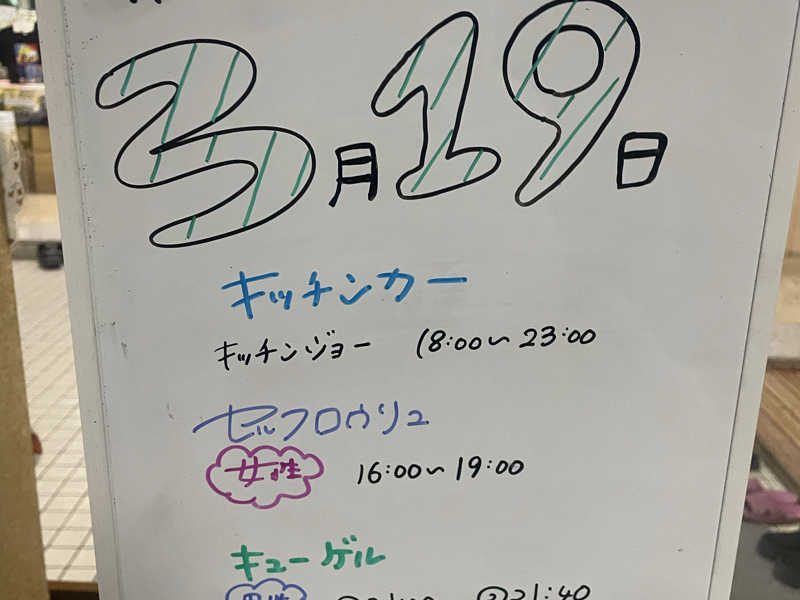 3月19日
キッチンカー
キッチンジョー 18:00〜23:00
セルフロウリュ
女性 16:00〜19:00
キューゲル
②21:40